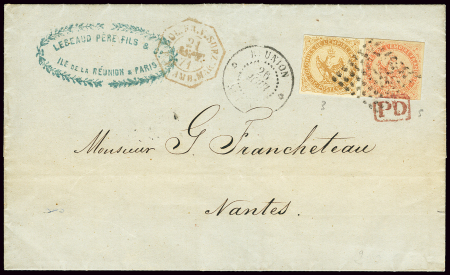 LEBEAUD PÈRE FILS &
ILE DE LA RÉUNION & PARIS
21
UNION
PD
Monsieur G. Francheteau
Nantes.